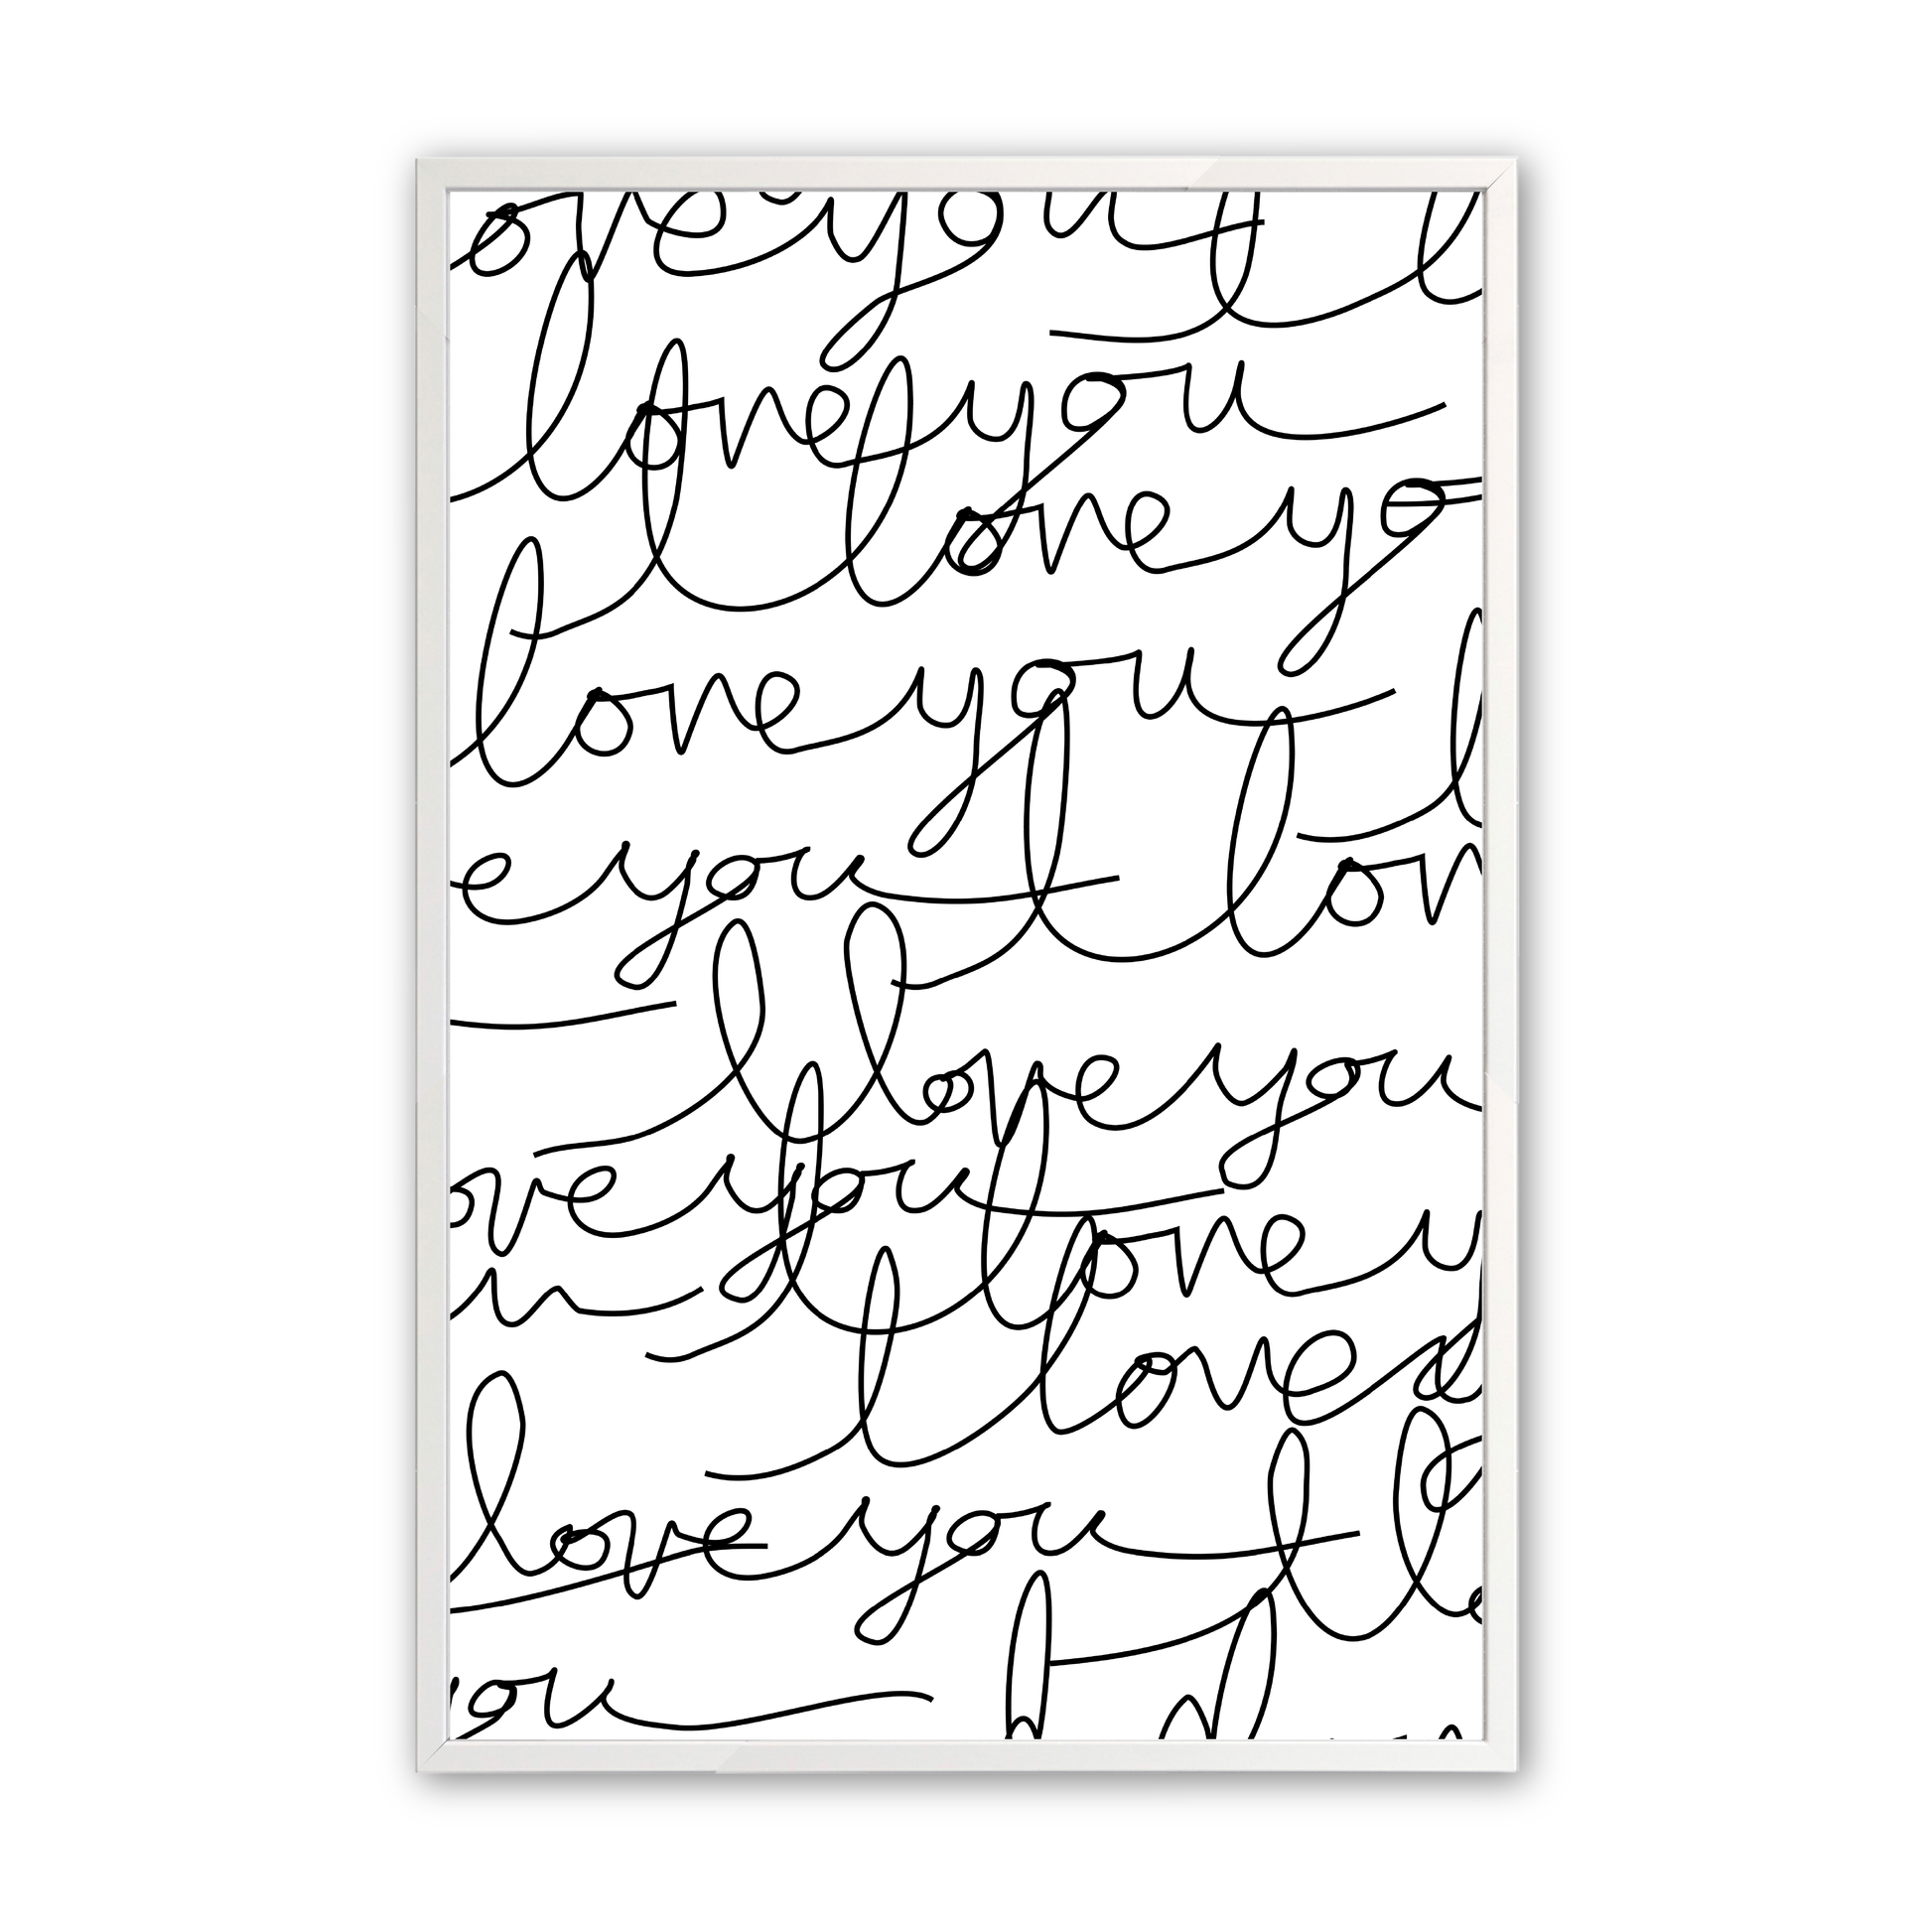 love you I l
love you
I love yo
love you I
e you I lov
I love you
ove you I love y
u I love y
love you I lo
you I